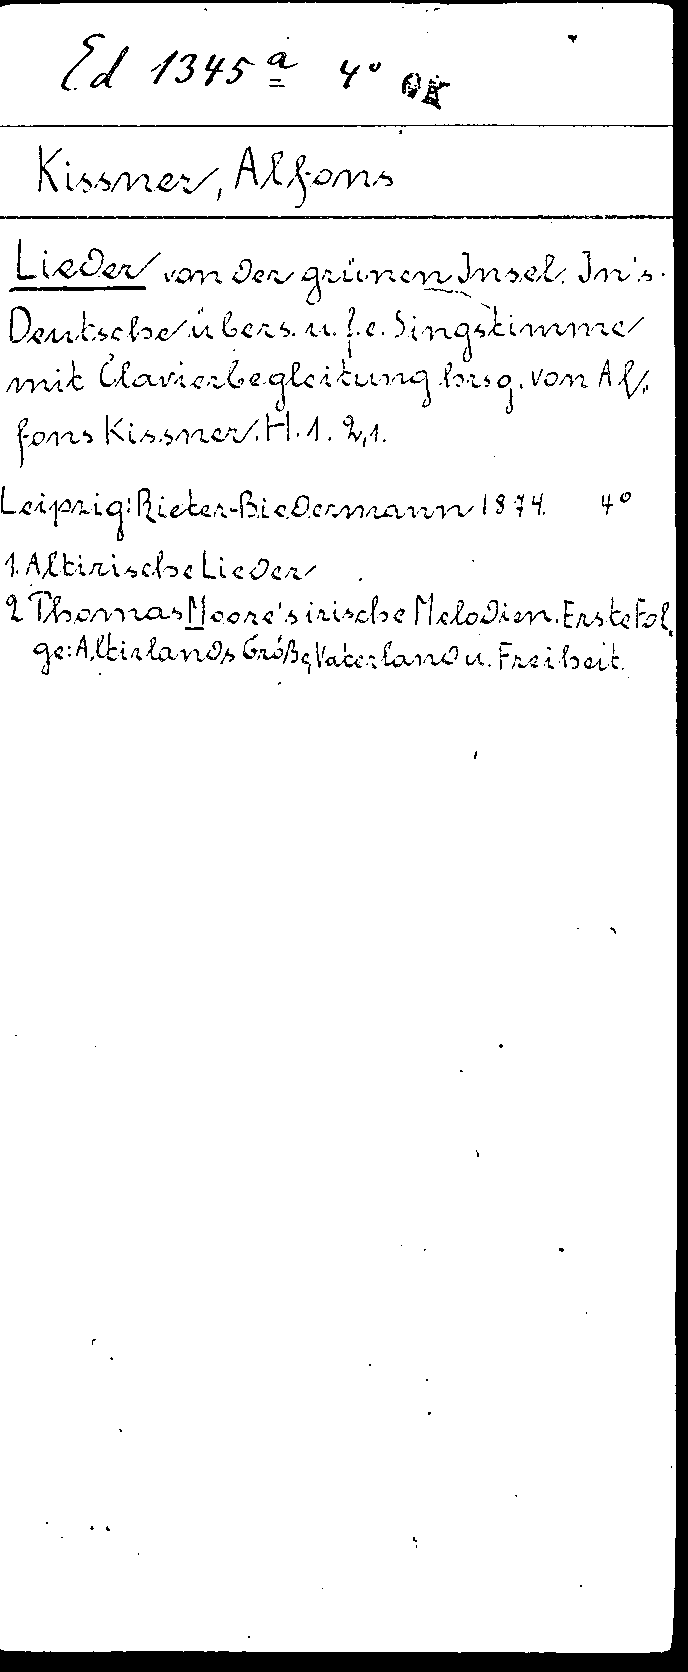 Ed 1345 a 4° OK
Kissner, Alfons
Lieder von der grünen Insel. In's
Deutsche übers. u. f. e. Singstimme
mit Clavierbegleitung hrsg. von Al-
fons Kissner. H. 1. 2,1.
Leipzig: Rieter-Biedermann 1874. 4°
1. Altirische Lieder
2 Thomas Moore's irische Melodien. Erste Fol-
ge: Altirlands Größe, Vaterland u. Freiheit.